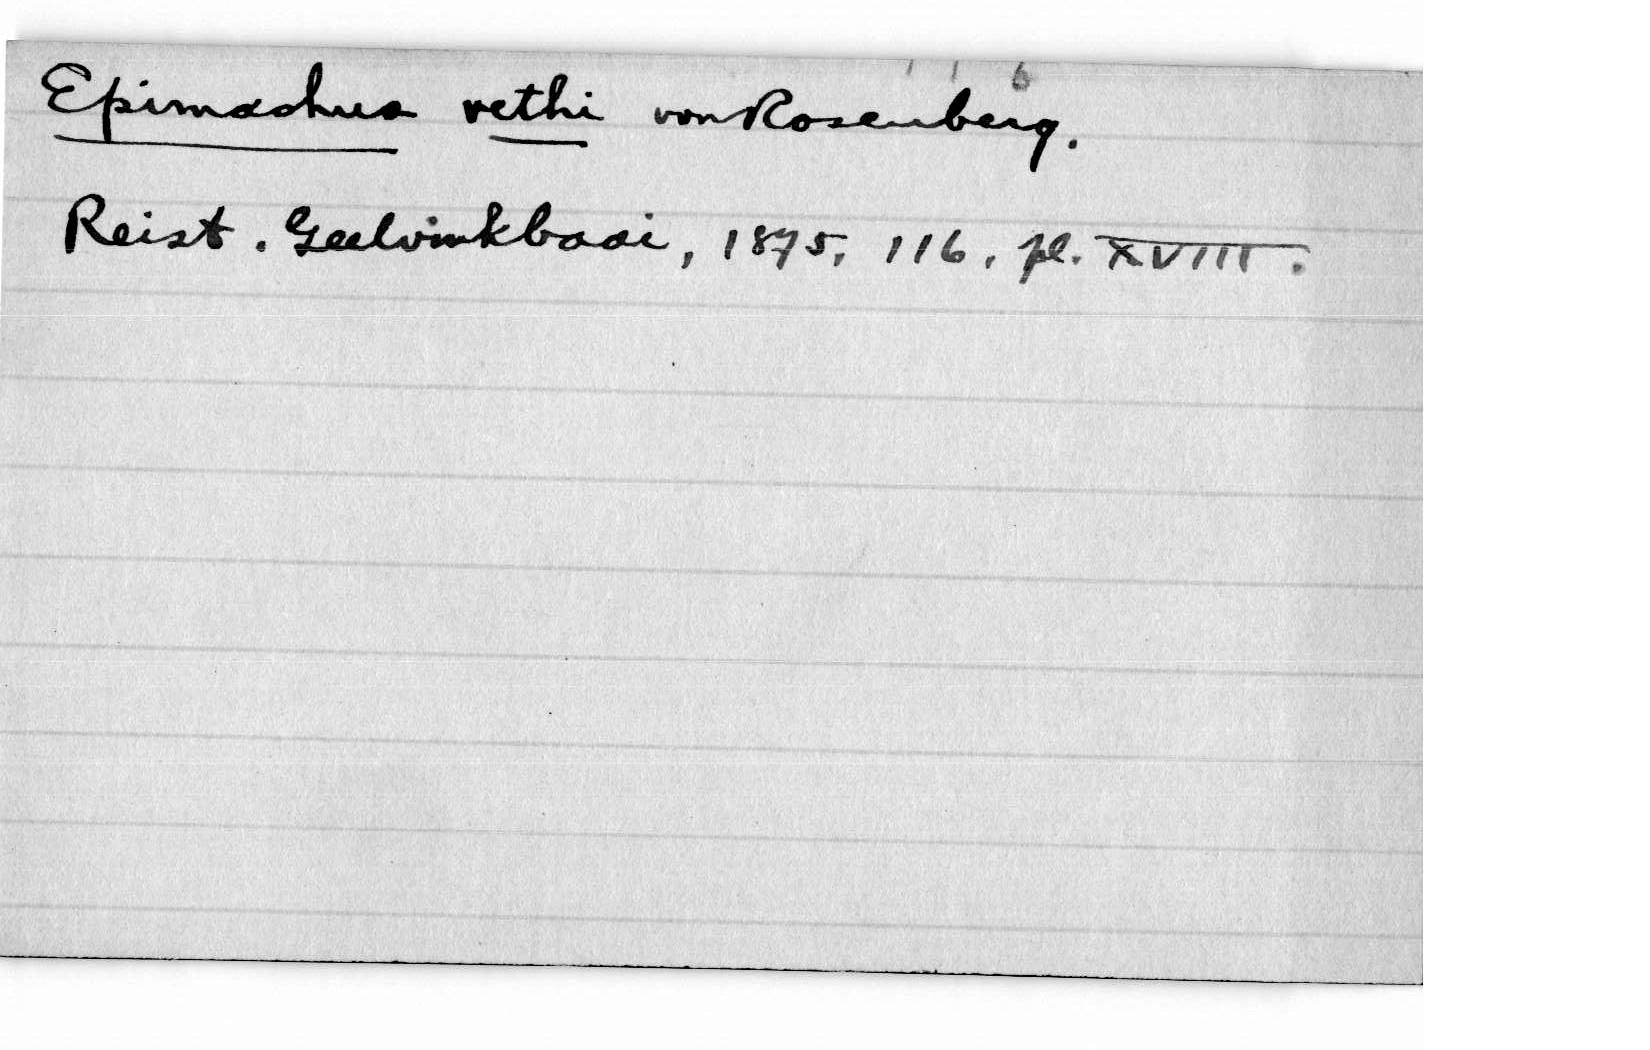 Epimachus vethi von Rosenberg.
Reist. Geelvinkbaai, 1875, 116, pl. XVIII.